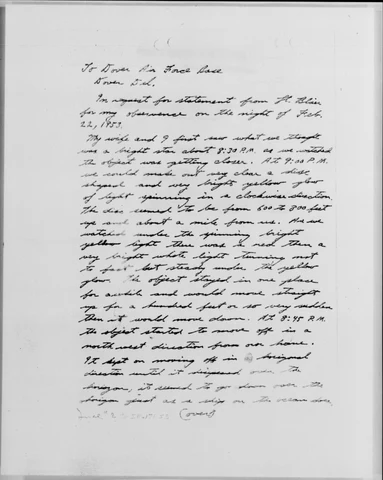 To Dover Air Force Base
Dover Del.
In request for statement from Lt. Blair
for my observence on the night of Feb.
22, 1953.
My wife and I first saw what we thought
was a bright star about 8:30 P.M. as we watched
the object was getting closer. At 9:00 P.M.
we could make out very clear a disc
shaped and very bright yellow glow
of light spinning in a clockwise direction.
The disc seemed to be from 600 to 800 feet
up and about a mile from us. As we
watched under the spinning bright
yellow light there was a red then a
very bright white light turning not
to fast but steady under the yellow
glow. The object stayed in one place
for awhile and would move straight
up for a hundred feet or so very sudden
then it would move down. At 8:45 P.M.
the object started to move off in a
north west direction from our home.
It kept on moving off in a
direction until it over the
horizon, it seemed to go down over the
horizon just as a ship on the ocean does
(over)